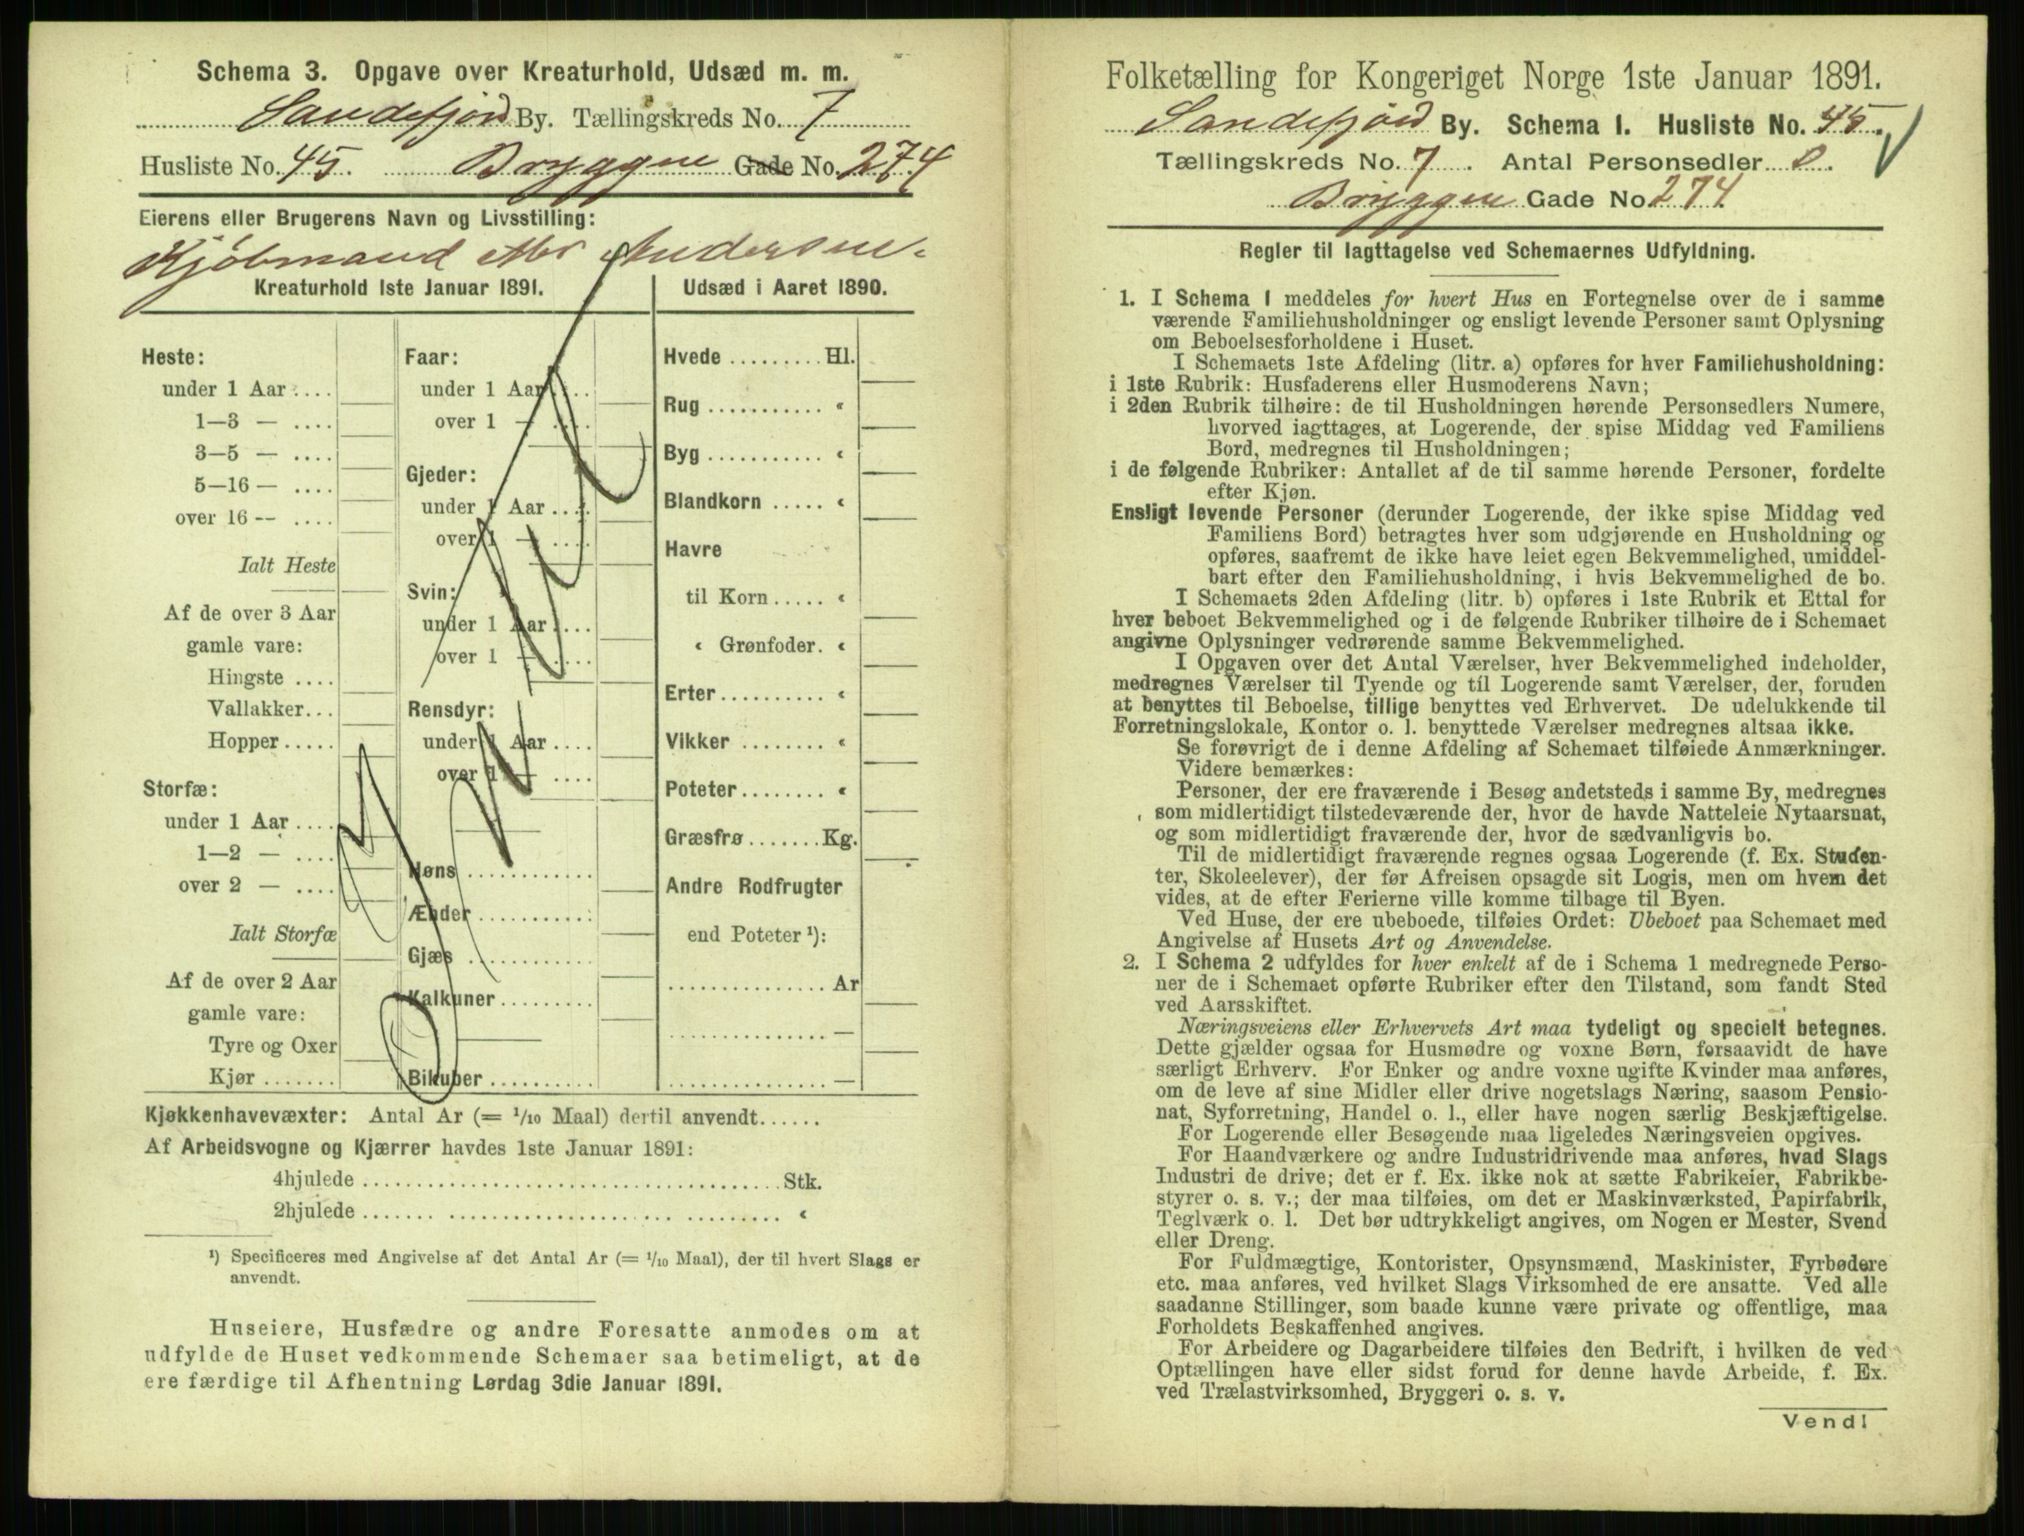 Schema 3. Opgave over Kreaturhold, Udsæd m. m.
Sandefjord By. Tællingskreds No. 7
Husliste No. 45. Bryggen Gade No. 274
Eierens eller Brugerens Navn og Livsstilling:
Kjøbmand Andersen.
Kreaturhold 1ste Januar 1891.
Heste:
under 1 Aar ....
1—3 — ....
3—5 — ....
5—16 — ....
over 16 -- ....
Ialt Heste
Af de over 3 Aar
gamle vare:
Hingste ....
Vallakker...
Hopper.....
Storfæ:
under 1 Aar ....
1—2 — ....
over 2 — ....
Ialt Storfæ
Af de over 2 Aar
gamle vare:
Tyre og Oxer
Kjør .......
Faar:
under 1 Aar ....
over 1 — ....
Gjeder:
under 1 Aar ....
over 1 — ....
Svin:
under 1 Aar ....
over 1 — ....
Rensdyr:
under 1 Aar ....
over 1 — ....
Høns ............
Ænder ...........
Gjæs ............
Kalkuner .........
Bikuber ..........
Udsæd i Aaret 1890.
Hvede ......... Hl.
Rug ........... «
Byg ........... «
Blandkorn ..... «
Havre
til Korn ..... «
« Grønfoder. «
Erter ......... «
Vikker ........ «
Poteter ........ «
Græsfrø ....... Kg.
Andre Rodfrugter
end Poteter ¹):
............... Ar
............... —
............... —
Kjøkkenhavevæxter: Antal Ar (= 1/10 Maal) dertil anvendt......
Af Arbeidsvogne og Kjærrer havdes 1ste Januar 1891:
4hjulede ........................................ Stk.
2hjulede ....... ..................... ......... «
¹) Specificeres med Angivelse af det Antal Ar (= 1/10 Maal), der til hvert Slags er
anvendt.
Huseiere, Husfædre og andre Foresatte anmodes om at
udfylde de Huset vedkommende Schemaer saa betimeligt, at de
ere færdige til Afhentning Lørdag 3die Januar 1891.
Folketælling for Kongeriget Norge 1ste Januar 1891.
Sandefjord By. Schema 1. Husliste No. 45.
Tællingskreds No. 7. Antal Personsedler 0.
Bryggen Gade No. 274
Regler til Iagttagelse ved Schemaernes Udfyldning.
1. I Schema 1 meddeles for hvert Hus en Fortegnelse over de i samme
værende Familiehusholdninger og ensligt levende Personer samt Oplysning
om Beboelsesforholdene i Huset.
I Schemaets 1ste Afdeling (litr. a) opføres for hver Familiehusholdning:
i 1ste Rubrik: Husfaderens eller Husmoderens Navn;
i 2den Rubrik tilhøire: de til Husholdningen hørende Personsedlers Numere,
hvorved iagttages, at Logerende, der spise Middag ved Familiens
Bord, medregnes til Husholdningen;
i de følgende Rubriker: Antallet af de til samme hørende Personer, fordelte
efter Kjøn.
Ensligt levende Personer (derunder Logerende, der ikke spise Middag ved
Familiens Bord) betragtes hver som udgjørende en Husholdning og
opføres, saafremt de ikke have leiet egen Bekvemmelighed, umiddel-
bart efter den Familiehusholdning, i hvis Bekvemmelighed de bo.
I Schemaets 2den Afdeling (litr. b) opføres i 1ste Rubrik et Ettal for
hver beboet Bekvemmelighed og i de følgende Rubriker tilhøire de i Schemaet
angivne Oplysninger vedrørende samme Bekvemmelighed.
I Opgaven over det Antal Værelser, hver Bekvemmelighed indeholder,
medregnes Værelser til Tyende og til Logerende samt Værelser, der, foruden
at benyttes til Beboelse, tillige benyttes ved Erhvervet. De udelukkende til
Forretningslokale, Kontor o. l. benyttede Værelser medregnes altsaa ikke.
Se forøvrigt de i denne Afdeling af Schemaet tilføiede Anmærkninger.
Videre bemærkes:
Personer, der ere fraværende i Besøg andetsteds i samme By, medregnes
som midlertidigt tilstedeværende der, hvor de havde Natteleie Nytaarsnat,
og som midlertidigt fraværende der, hvor de sædvanligvis bo.
Til de midlertidigt fraværende regnes ogsaa Logerende (f. Ex. Studen-
ter, Skoleelever), der før Afreisen opsagde sit Logis, men om hvem det
vides, at de efter Ferierne ville komme tilbage til Byen.
Ved Huse, der ere ubeboede, tilføies Ordet: Ubeboet paa Schemaet med
Angivelse af Husets Art og Anvendelse.
2. I Schema 2 udfyldes for hver enkelt af de i Schema 1 medregnede Perso-
ner de i Schemaet opførte Rubriker efter den Tilstand, som fandt Sted
ved Aarsskiftet.
Næringsveiens eller Erhvervets Art maa tydeligt og specielt betegnes.
Dette gjælder ogsaa for Husmødre og voxne Børn, forsaavidt de have
særligt Erhverv. For Enker og andre voxne ugifte Kvinder maa anføres,
om de leve af sine Midler eller drive nogetslags Næring, saasom Pensio-
nat, Syforretning, Handel o. l., eller have nogen særlig Beskjæftigelse.
For Logerende eller Besøgende maa ligeledes Næringsveien opgives.
For Haandværkere og andre Industridrivende maa anføres, hvad Slags
Industri de drive; det er f. Ex. ikke nok at sætte Fabrikeier, Fabrikbe-
styrer o. s. v.; der maa tilføies, om det er Maskinværksted, Papirfabrik,
Teglværk o. l. Det bør udtrykkeligt angives, om Nogen er Mester, Svend
eller Dreng.
For Fuldmægtige, Kontorister, Opsynsmænd, Maskinister, Fyrbødere
etc. maa anføres, ved hvilket Slags Virksomhed de ere ansatte. Ved alle
saadanne Stillinger, som baade kunne være private og offentlige, maa
Forholdets Beskaffenhed angives.
For Arbeidere og Dagarbeidere tilføies den Bedrift, i hvilken de ved
Optællingen have eller sidst forud for denne havde Arbeide, f. Ex.
ved Trælastvirksomhed, Bryggeri o. s. v.
Vend!